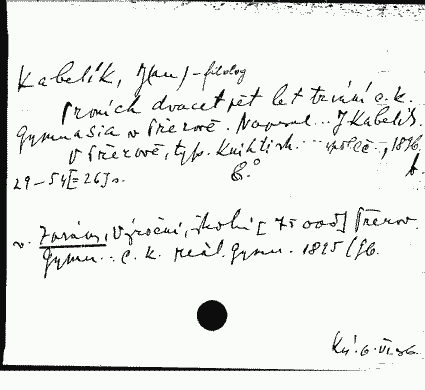 Kabelík, Jan) - filolog
Prvních dvacet pět let trvání c.k.
gymnasia v Přerově. Napsal... J. Kabelík.
V Přerově, typ. Knihtisk. ... spolč., 1896.
29-54 [= 26] s. 8° b.
v. Zpráva, Výroční, školní [za rok] Přerov.
Gymn... c. k. reál. gymn. 1895/96.
Ký. 6. VI. 36.